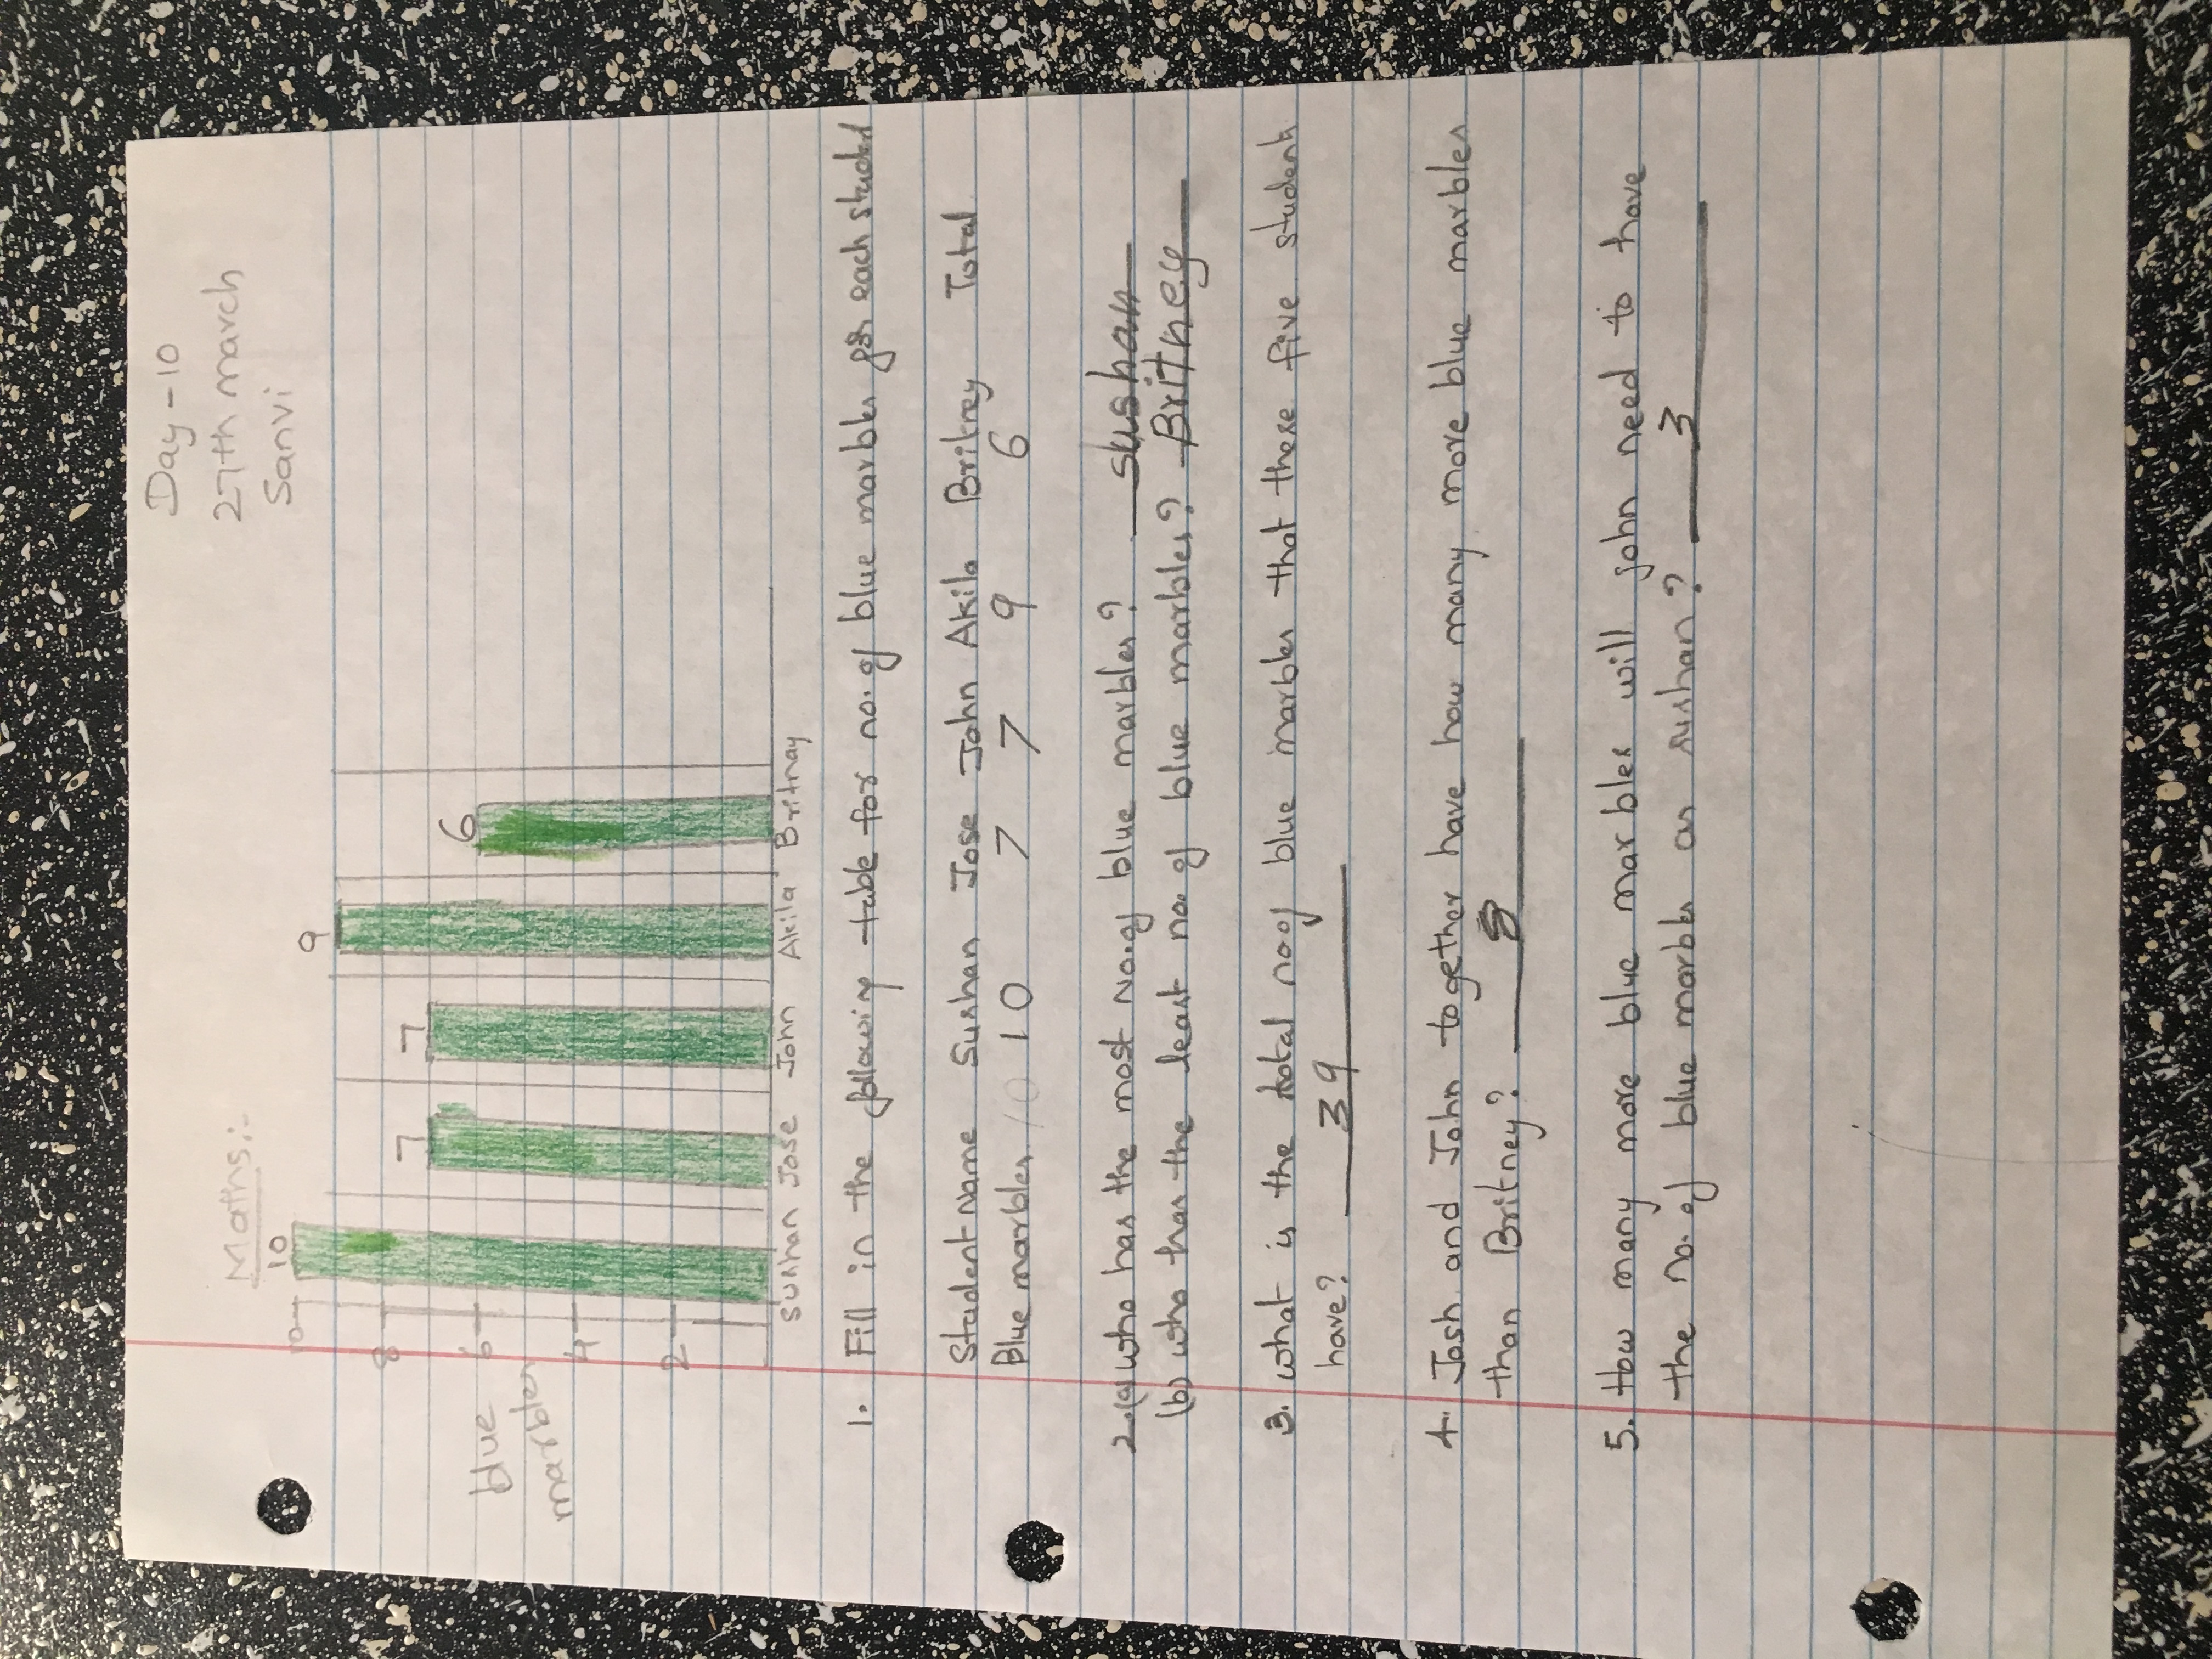 Day - 10
27th march
Sanvi
Maths:-
10
10
9
8
7
7
6
6
blue
marbles
4
2
Sushan Jose John Akila Britnay
1. Fill in the following table for no. of blue marbles for each student
Student Name Sushan Jose John Akila Britney Total
Blue marbles 10 10 7 7 9 6
2.(a) who has the most No. of blue marbles? sushan
(b) who has the least no. of blue marbles? Britney
3. what is the total no of blue marbles that these five students
have? 39
4. Josh and John together have how many more blue marbles
than Britney? 8
5. How many more blue marbles will john need to have
the no. of blue marbles as sushan? 3